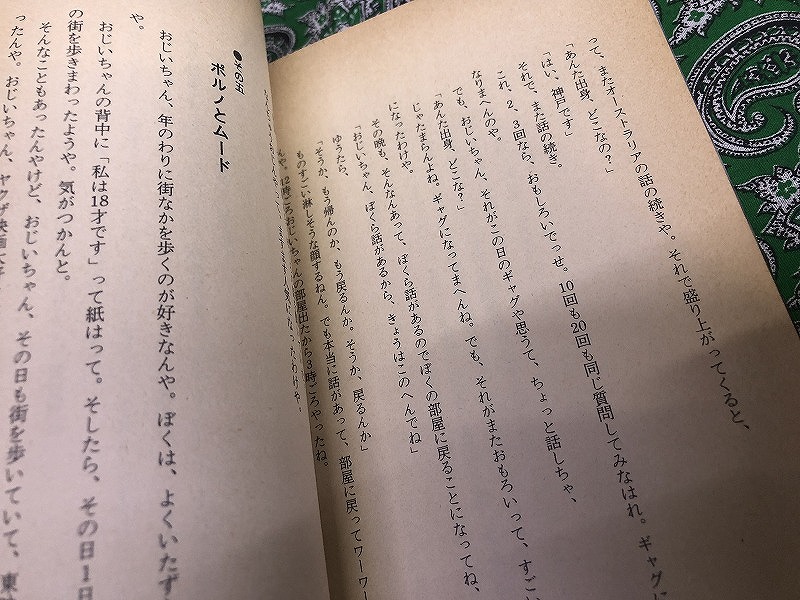 って、またオーストラリアの話の続きや。それで盛り上がってくると、
「あんた出身、どこなの？」
「はい、神戸です」
それで、また話の続き。
これ、2、3回なら、おもしろいでっせ。10回も20回も同じ質問してみなはれ。ギャグに
なりまへんのや。
でも、おじいちゃん、それがこの日のギャグや思うて、ちょっと話しちゃ、
「あんた出身、どこな？」
じゃたまらんよね。ギャグになってまへんね。でも、それがまたおもろいって、すごい
になったわけや。
その晩も、そんなんあって、ぼくら話があるのでぼくの部屋に戻ることになってね、
「おじいちゃん、ぼくら話があるから、きょうはこのへんでね」
ゆうたら、
「そうか、もう帰んのか、もう戻るんか。そうか、戻るんか」
ものすごい淋しそうな顔するねん。でも本当に話があって、部屋に戻ってワーワー
んや。12時ごろおじいちゃんの部屋出たから3時ごろやったね。
人気になったわけや。
●その五
ポルノとムード
おじいちゃん、年のわりに街なかを歩くのが好きなんや。ぼくは、よくいたず
や。
おじいちゃんの背中に「私は18才です」って紙はって。そしたら、その日1日
の街を歩きまわったようや。気がつかんと。
そんなこともあったんやけど、おじいちゃん、その日も街を歩いていて、東
ったんや。おじいちゃん、ヤクザ映画